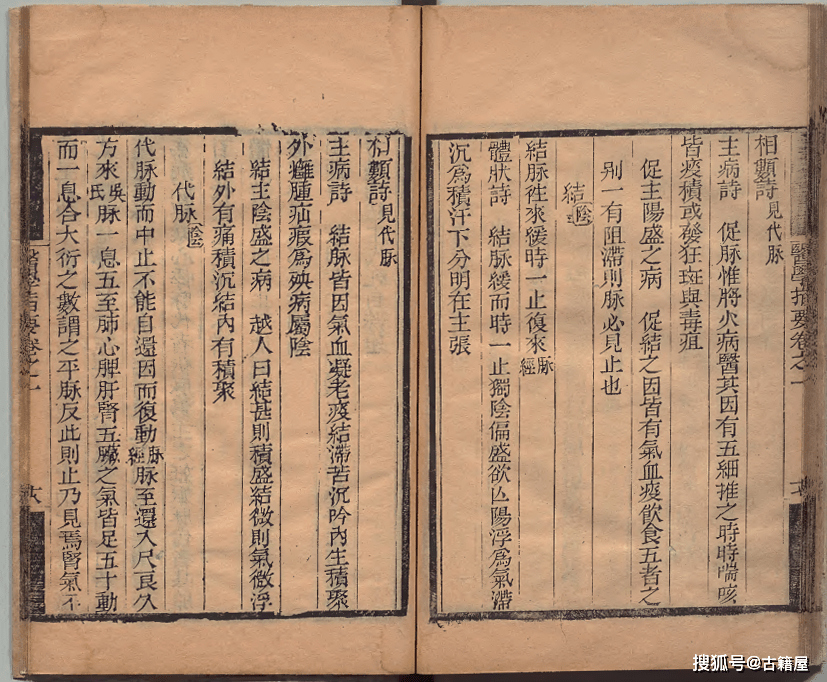 相類詩見代脉
主病詩 促脉惟將火病醫其因有五細推之時時喘咳
皆痰積或發狂斑與毒疽
促主陽盛之病 促結之因皆有氣血痰飲食五者之
别一有阻滯則脉必見止也
結陰
結脉徃來緩時一止復來脉經
體狀詩 結脉緩而時一止獨陰偏盛欲亾陽浮爲氣滯
沉爲積汗下分明在主張
醫學指要卷之一
相類詩見代脉
主病詩 結脉皆因氣血凝老痰結滯苦沉吟內生積聚
外癰腫疝瘕爲殃病屬陰
結主陰盛之病 越人曰結甚則積盛結微則氣微浮
結外有痛積沉結內有積聚
代脉陰
代脉動而中止不能自還因而復動脉經脉至還入尺良久
方來吳氏脉一息五至肺心脾肝腎五臟之氣皆足五十動
而一息合大衍之數謂之平脉反此則止乃見焉腎氣不
醫學指要卷之一
搜狐号@古籍屋